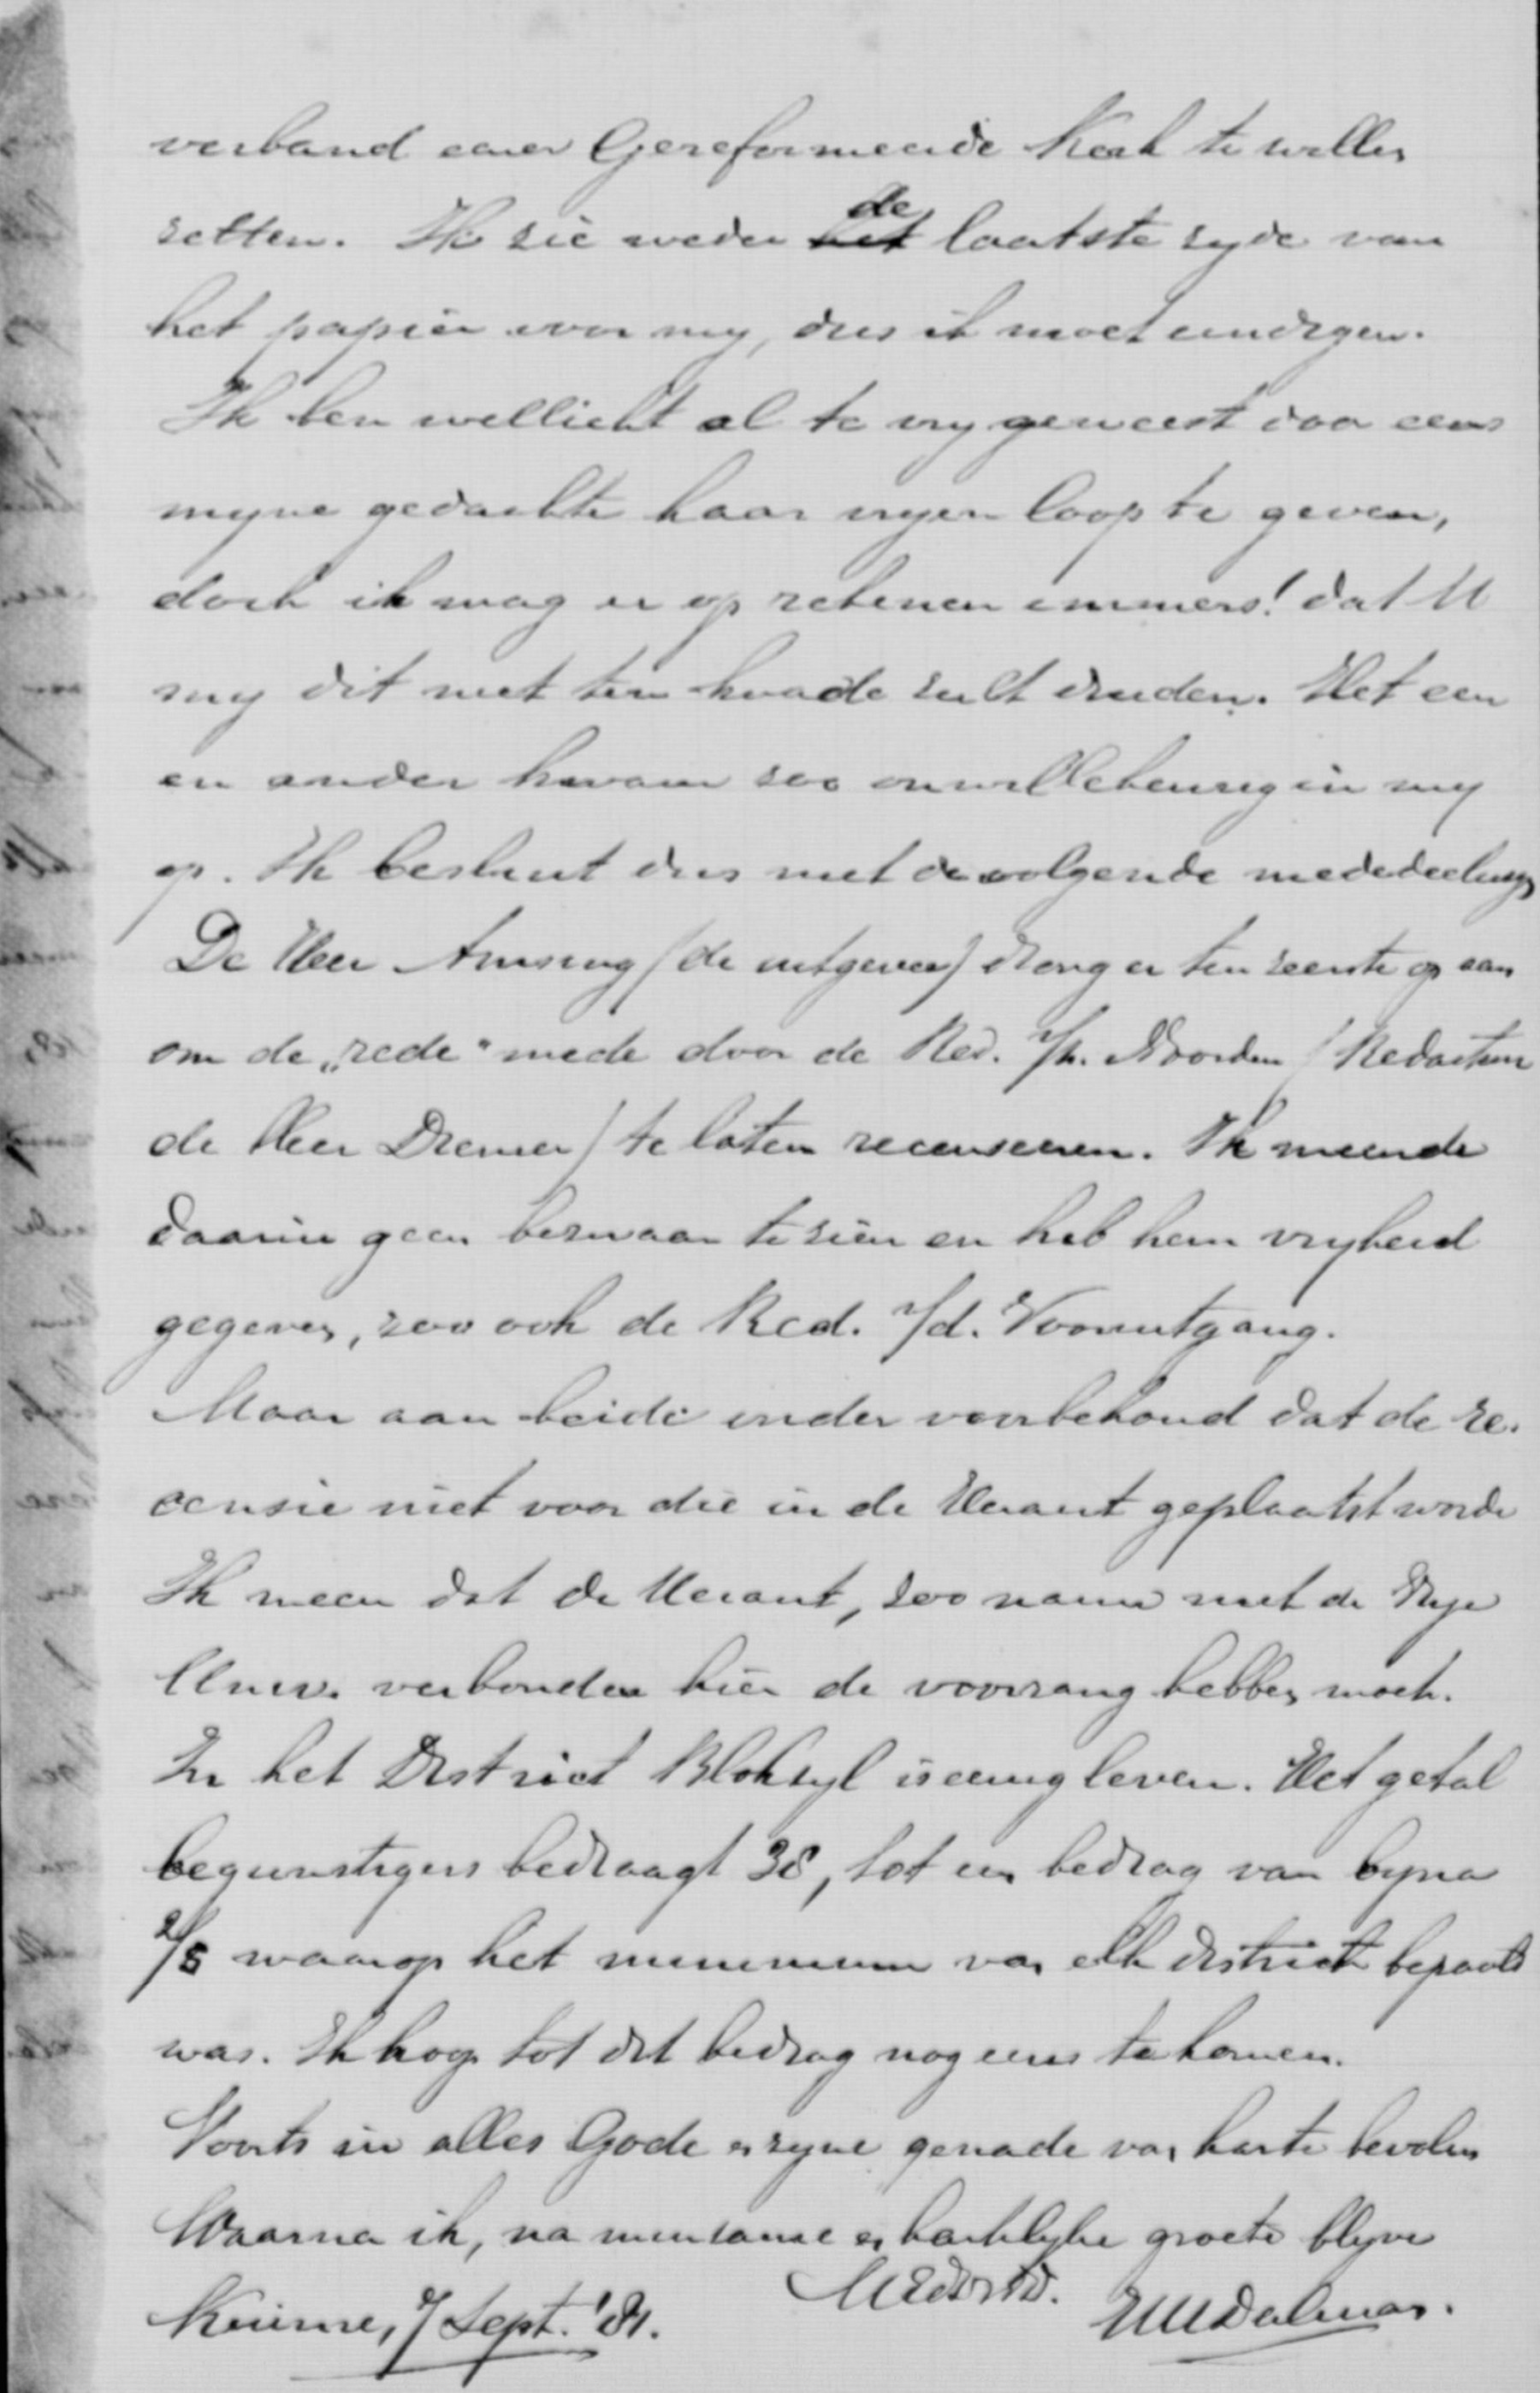 verband eener Gereformeerde Kerk te willen
zetten. Ik zie weder de laatste zyde van
het papier voor my, dus ik moet eindigen.
Ik ben wellicht al te vry geweest door eens
myne gedachte haar vryen loop te geven,
doch ik mag er op rekenen immers! dat U
my dit niet ten kwade zult duiden. Het een
en ander kwam zoo onwillekeurig in my
op. Ik besluit dus met de volgende mededeeling
De Heer Amsing (de uitgever) drong er ten zeerste op aan
om de „rede" mede door de Red. v/h. Noorden (Redacteur
de Heer Diemer) te laten recenseeren. Ik meende
daarin geen bezwaar te zien en heb hem vryheid
gegeven, zoo ook de Red. v/d. Vooruitgang.
Maar aan beide onder voorbehoud dat de re-
censie niet voor die in de Heraut geplaatst worde
Ik meen dat de Heraut, zoo nauw met de Vrye
Univ. verbonden hier de voorrang hebben moet.
In het District Blokzyl is eenig leven. Het getal
begunstigers bedraagt 38, tot een bedrag van byna
2/5 waarop het minimum van elk district bepaald
was. Ik hoop tot dit bedrag nog eens te komen.
Voorts in alles Gode en zyne genade van harte bevolen
Waarna ik, na minzame en hartelyke groete blyve
UEdw
Kuinre, 7 Sept. '81.